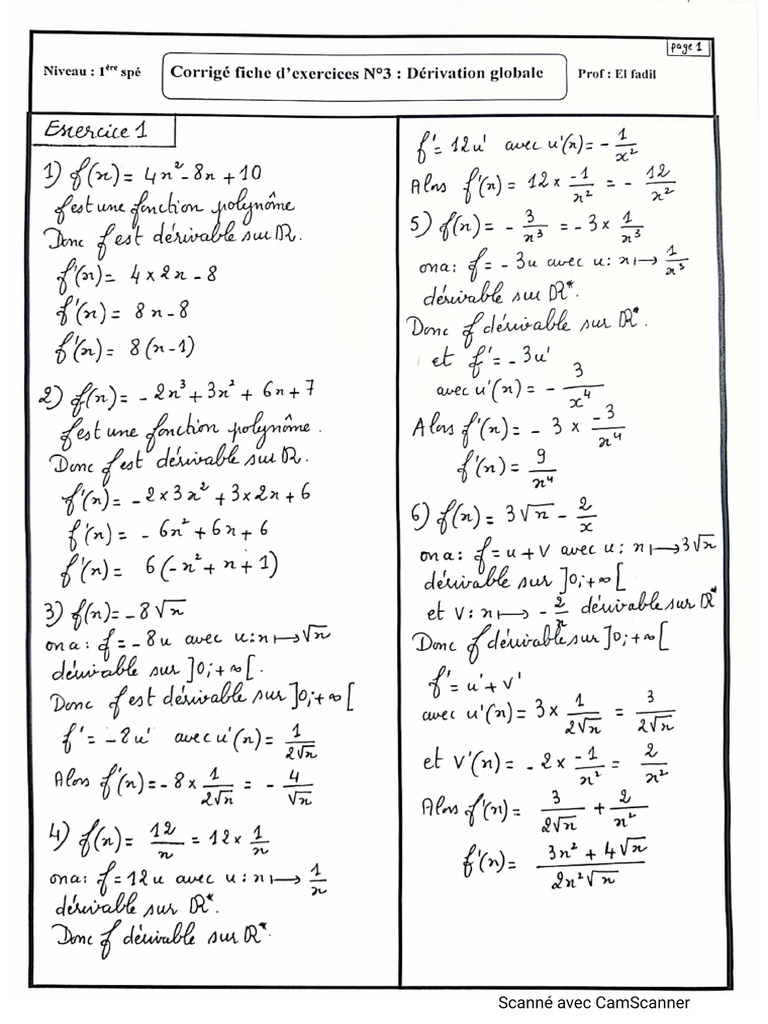 page 1
Niveau : 1ère spé
Corrigé fiche d'exercices N°3 : Dérivation globale
Prof : El fadil
Exercice 1
1) f(x) = 4x² - 8x + 10
f est une fonction polynôme
Donc f est dérivable sur ℝ.
f'(x) = 4 × 2x - 8
f'(x) = 8x - 8
f'(x) = 8(x - 1)
2) f(x) = - 2x³ + 3x² + 6x + 7
f est une fonction polynôme.
Donc f est dérivable sur ℝ.
f'(x) = - 2 × 3x² + 3 × 2x + 6
f'(x) = - 6x² + 6x + 6
f'(x) = 6(-x² + x + 1)
3) f(x) = - 8√x
on a : f = - 8u avec u : x ⟼ √x
dérivable sur ]0 ; +∞[.
Donc f est dérivable sur ]0 ; +∞[
f' = - 8u' avec u'(x) = 1/(2√x)
Alors f'(x) = - 8 × 1/(2√x) = - 4/√x
4) f(x) = 12/x = 12 × 1/x
on a : f = 12u avec u : x ⟼ 1/x
dérivable sur ℝ*.
Donc f dérivable sur ℝ*.
f' = 12u' avec u'(x) = - 1/x²
Alors f'(x) = 12 × -1/x² = - 12/x²
5) f(x) = - 3/x³ = - 3 × 1/x³
on a : f = - 3u avec u : x ⟼ 1/x³
dérivable sur ℝ*.
Donc f dérivable sur ℝ*.
et f' = - 3u'
avec u'(x) = - 3/x⁴
Alors f'(x) = - 3 × -3/x⁴
f'(x) = 9/x⁴
6) f(x) = 3√x - 2/x
on a : f = u + v avec u : x ⟼ 3√x
dérivable sur ]0 ; +∞[
et v : x ⟼ - 2/x dérivable sur ℝ*
Donc f dérivable sur ]0 ; +∞[
f' = u' + v'
avec u'(x) = 3 × 1/(2√x) = 3/(2√x)
et v'(x) = - 2 × -1/x² = 2/x²
Alors f'(x) = 3/(2√x) + 2/x²
f'(x) = (3x² + 4√x)/(2x²√x)
Scanné avec CamScanner